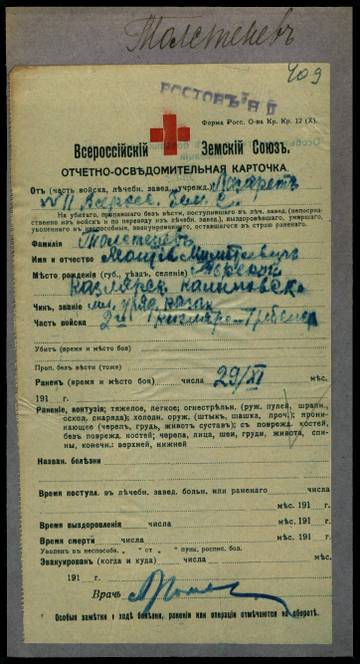 Толстеневъ
409
РОСТОВЪ Н/Д
Форма Росс. О-ва Кр. Кр. 12 (X).
Всероссійскій Земскій Союзъ.
ОТЧЕТНО-ОСВѢДОМИТЕЛЬНАЯ КАРТОЧКА.
Отъ (часть войска, лѣчебн. завед., учрежд.) Лазаретъ
№ 11 Всеросс. Зем. С.
На убитаго, пропавшаго безъ вѣсти, поступившаго въ лѣч. завед. (непосредственно изъ войскъ и по переводу изъ др. лѣчебн. завед.), выздоровѣвшаго, умершаго, уволеннаго къ неспособн., эвакуированнаго, оставшагося въ строю раненаго.
Фамилія Толстеневъ
Имя и отчество
Мѣсто рожденія (губ., уѣзд., селеніе) Терской
Чинъ, званіе мл. уряд. казак
Часть войска 2й Кизляро-Гребенск
Убитъ (время и мѣсто боя)
Проп. безъ вѣсти (тоже)
Раненъ (время и мѣсто боя) числа 29/XI мѣс.
191 г.
Раненіе, контузія: тяжелое, легкое; огнестрѣльн. (руж. пуля, шрапн., оскол. снаряда); холодн. оруж. (штыкъ, шашка, проч.); проникающее (черепъ, грудь, животъ суставъ); съ поврежд. костей, безъ поврежд. костей; черепа, лица, шеи, груди, живота, спины, конечн.: верхней, нижней
Назван. болѣзни
Время поступл. въ лѣчебн. завед. больн. или раненаго числа
мѣс. 191 г.
Время выздоровленія числа мѣс. 191 г.
Время смерти числа мѣс. 191 г.
Уволенъ въ неспособн. „ “ отъ „ “ пунк. роспис. бол.
Эвакуированъ (когда и куда) числа мѣс.
191 г.
Врачъ
Особыя замѣтки о ходѣ болѣзни, раненія или операціи отмѣчаются на оборотѣ.